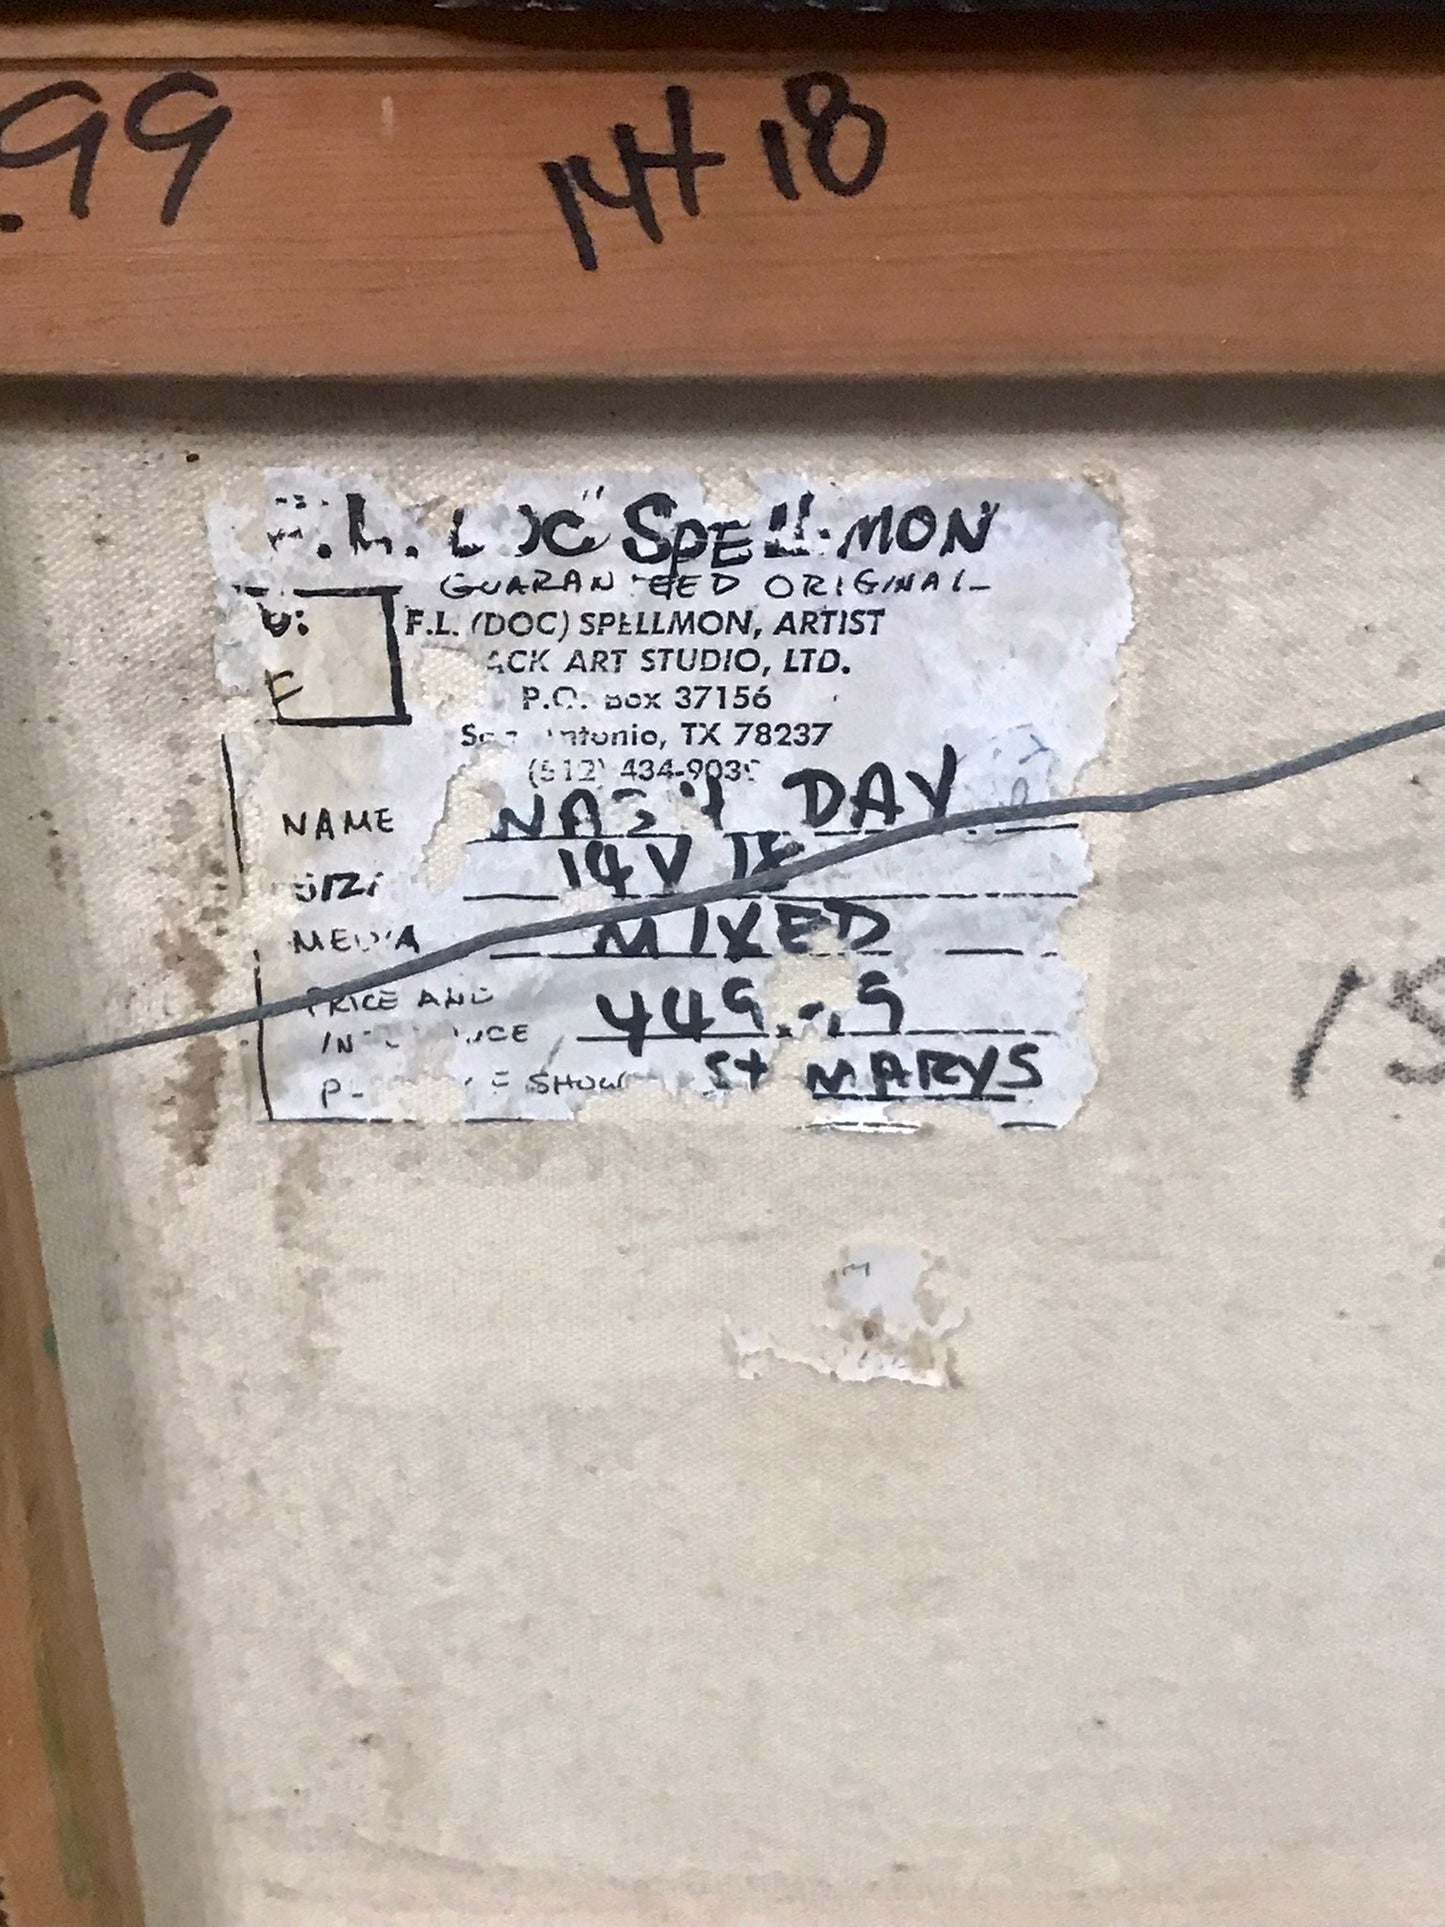 .99 14+ 18
"DOC" SPELLMON
GUARANTEED ORIGINAL
F.L. (DOC) SPELLMON, ARTIST
ACK ART STUDIO, LTD.
P.O. Box 37156
San Antonio, TX 78237
(512) 434-903
NAME DAY
SIZE 14
MEDIA MIXED
PRICE AND 449.
SHOW St MARYS